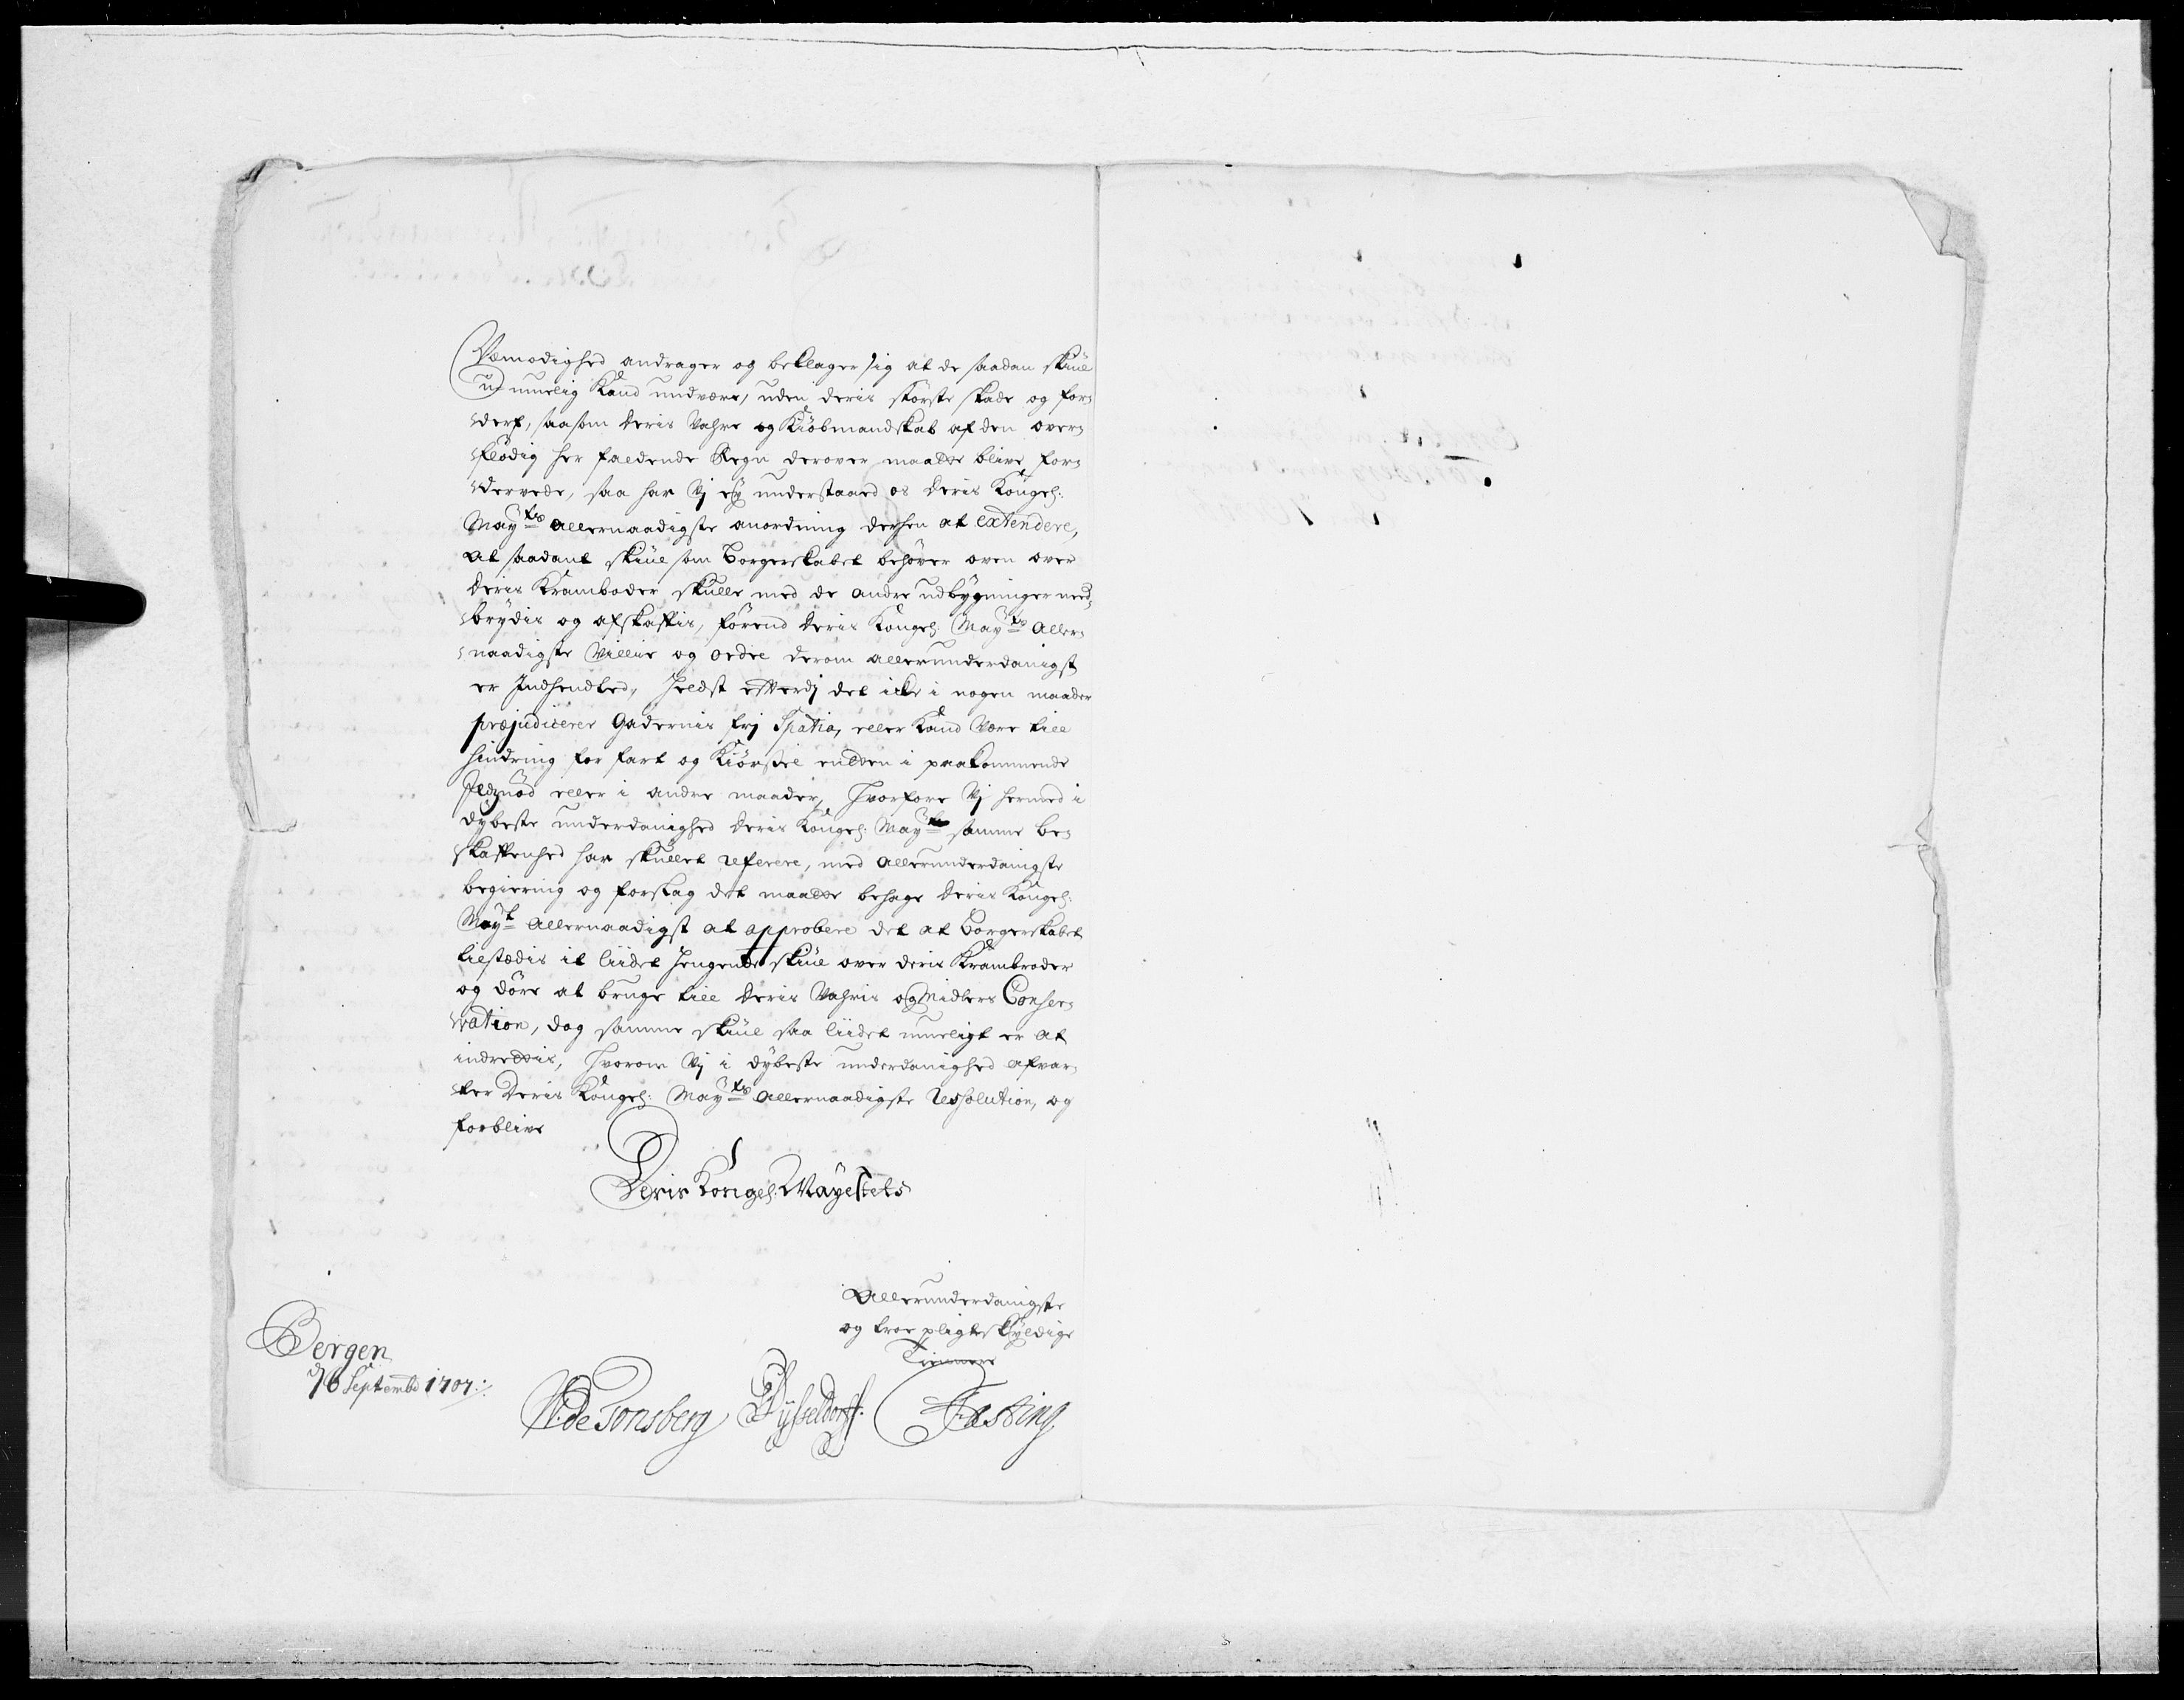 Vemodighed andrager og beklager sig at de saadan skiul
umuelig kand undvære, uden deris störste skade og for¬
derf, saasom deris Vahre og Kiöbmandskab af den over¬
flödig her faldende Regn derover maatte blive for¬
dervede, saa har Vj ej understaaed os deris Kongel:
Mayts allernaadigste anordning derhen at extendere,
at saadant skiul som Borgerskabet behöver oven over
deris Kramboder skulle med de andre udbygninger ned¬
brydis og afskaffis, förend deris Kongel: Mayts aller¬
naadigste Villie og ordre derom allerunderdanigst
er Indhendted, helst efterdj det icke i nogen maader
præjudicerer Gadernis frj Spatio, eller kand være till
hindring for fart og Kiörsel enten i paakommende
Ildznöd eller i andre maader, hvorfore Vj hermed i
dybeste underdanighed deris Kongel: Mayt samme be¬
skaffenhed har skullet referere, med allerunderdanigste
begiering og forslag det maatte behage deris Kongel:
Mayt allernaadigst at approbere det at Borgerskabet
tilstædis it liidet hengende skiul over deris Kramboder
og döre at bruge till deris Vahris og Midlers Conser¬
vation, dog samme skiul saa liidet mueligt er at
indrettis, hvorom Vj i dybeste underdanighed afvar¬
ter deris Kongel: Mayts allernaadigste Resolution, og
forblive
Deris Kongel: Mayestets
Allerunderdanigste
og troe pligtskyldige
Tienere
Bergen
d 6 Septembr 1707:
W: de Tonsberg DVysseldorff. Fasting